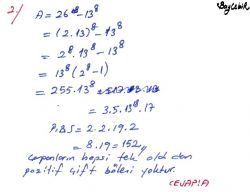 2./ A = 26⁸ - 13⁸
= (2.13)⁸ - 13⁸
= 2⁸.13⁸ - 13⁸
= 13⁸(2⁸-1)
= 255.13⁸
= 3.5.13⁸.17
P.B.S = 2.2.19.2
= 8.19 = 152
çarpanların hepsi tek old dan
pozitif çift böleni yoktur.
CEVAP: A